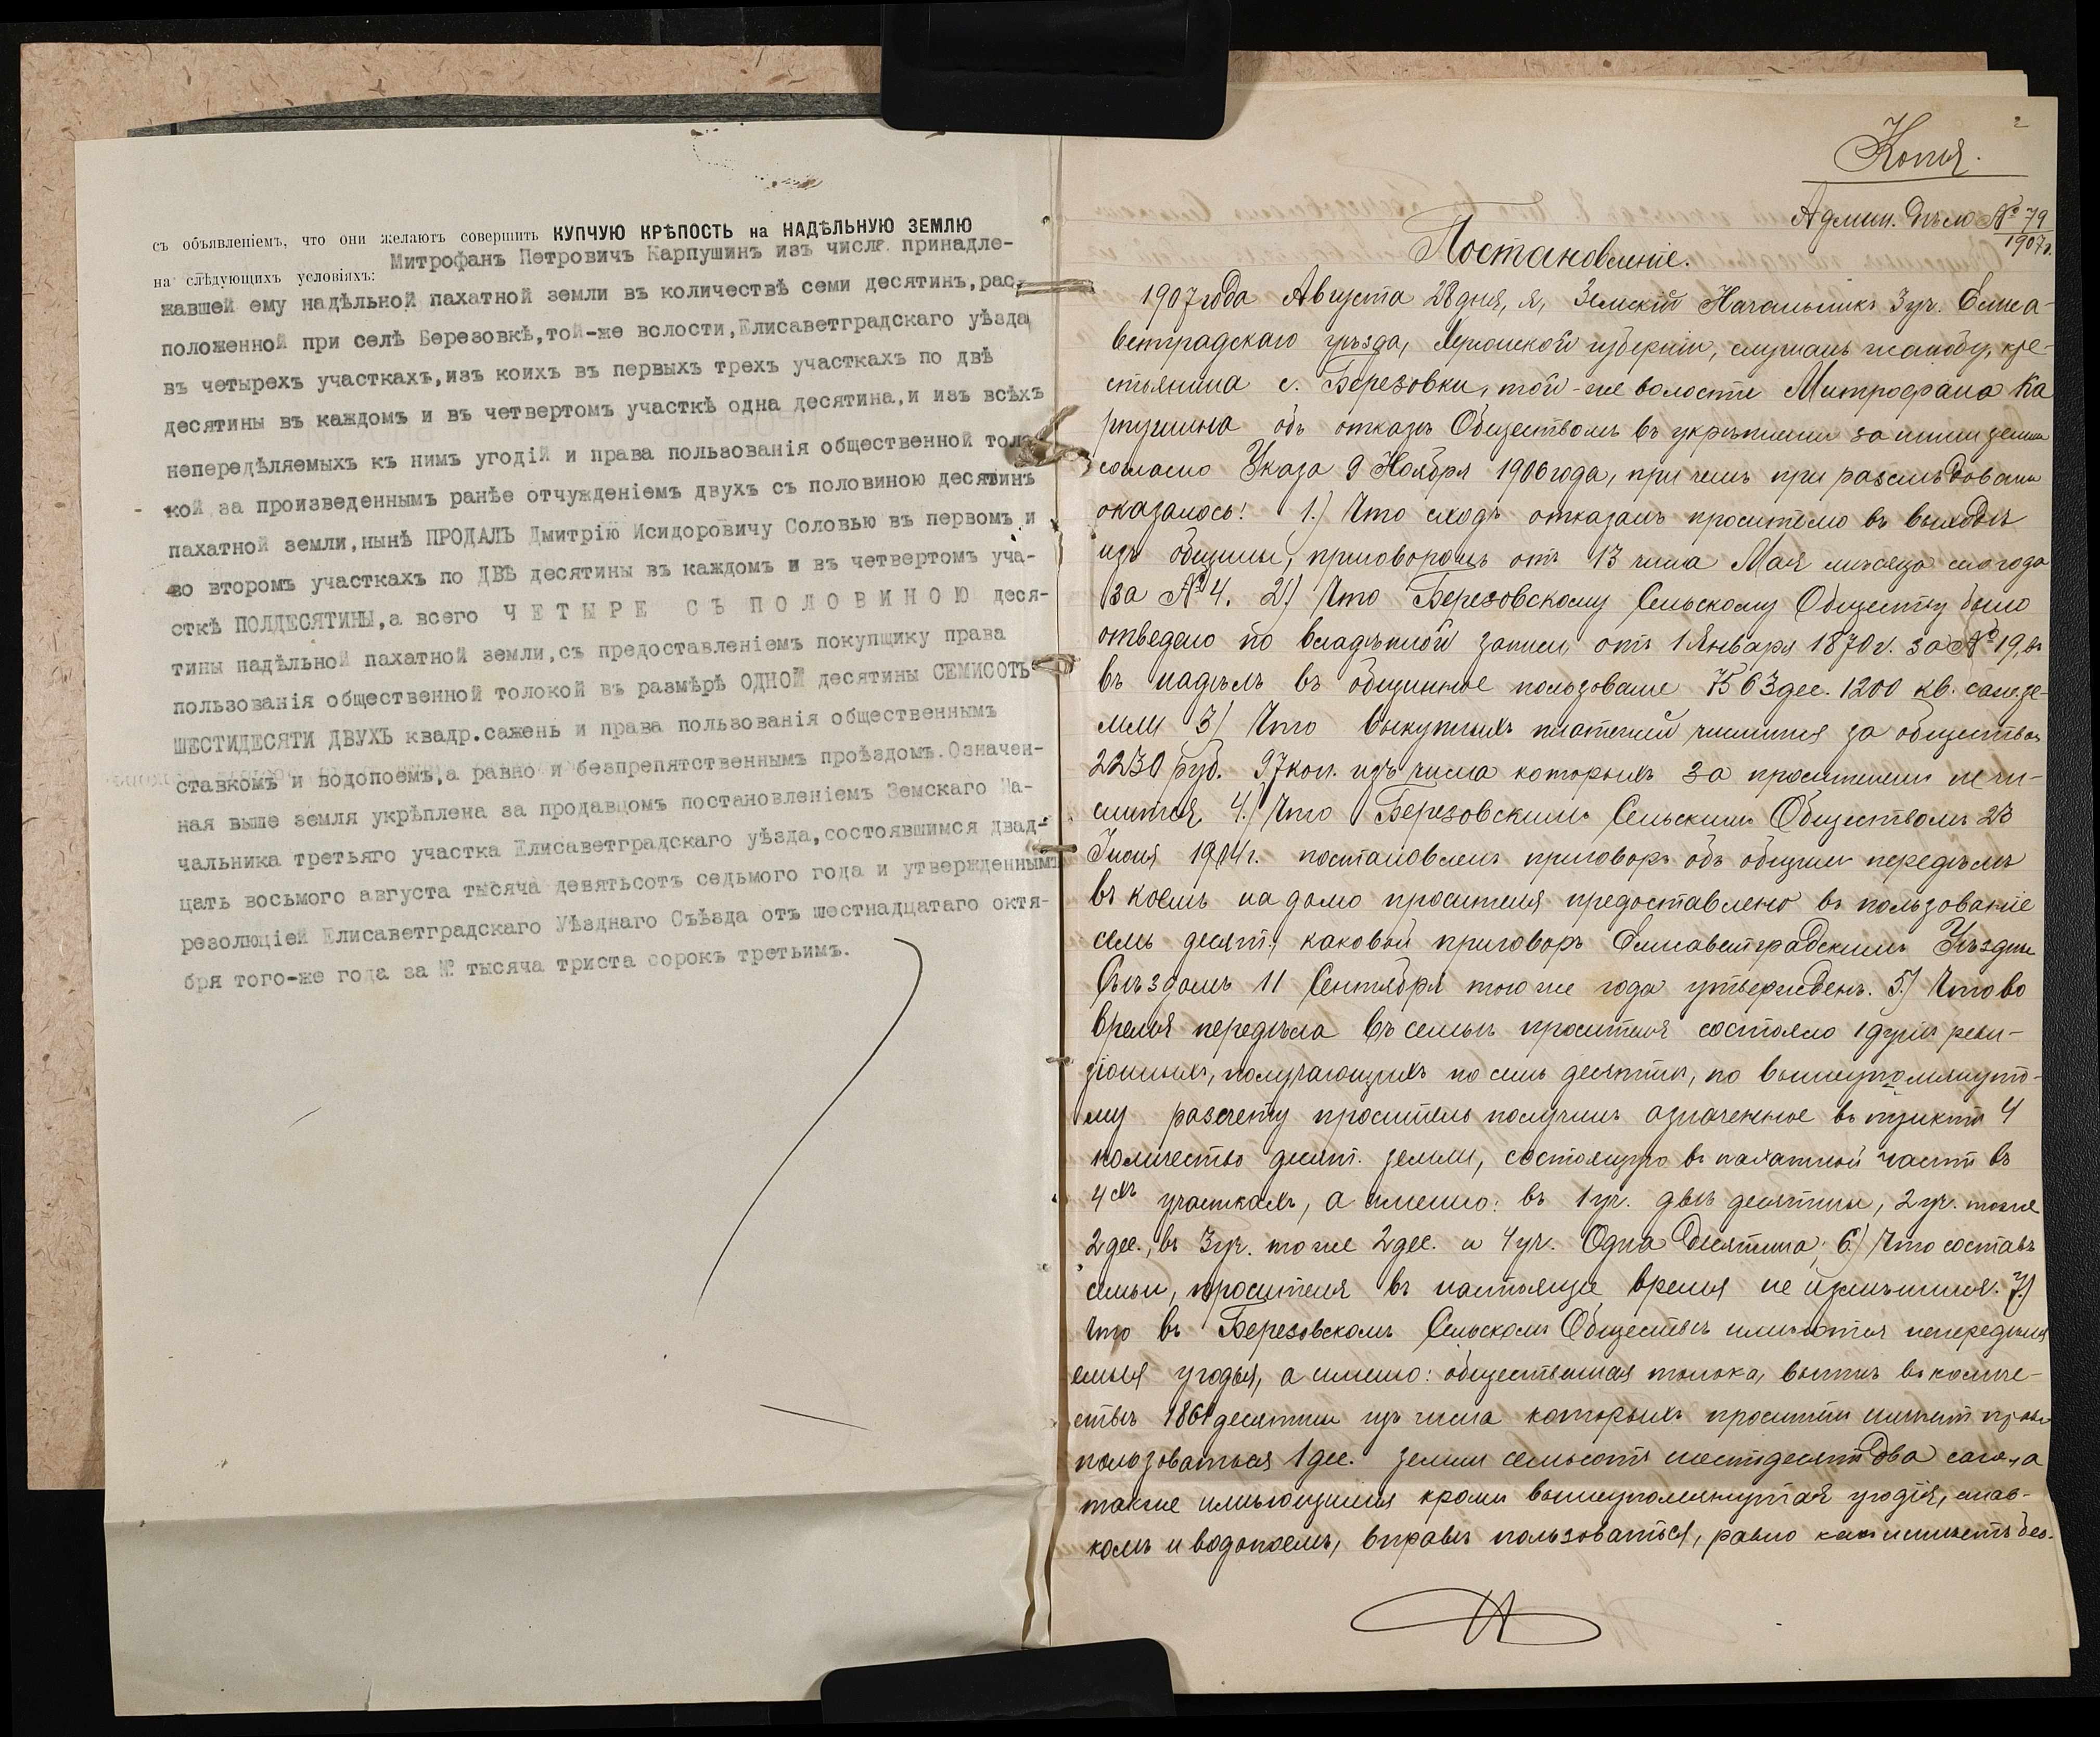 съ объявленіемъ, что они желаютъ совершить КУПЧУЮ КРѢПОСТЬ на НАДѢЛЬНУЮ ЗЕМЛЮ
на слѣдующихъ условіяхъ: Митрофанъ Петровичъ Карпушинъ изъ числа принадле-
жавшей ему надѣльной пахатной земли въ количествѣ семи десятинъ, рас-
положенной при селѣ Березовкѣ, той-же волости, Елисаветградскаго уѣзда
въ четырехъ участкахъ, изъ коихъ въ первыхъ трехъ участкахъ по двѣ
десятины въ каждомъ и въ четвертомъ участкѣ одна десятина, и изъ всѣхъ
непередѣляемыхъ къ нимъ угодій и права пользованія общественной толо-
кой за произведеннымъ ранѣе отчужденіемъ двухъ съ половиною десятинъ
пахатной земли, нынѣ ПРОДАЛЪ Дмитрію Исидоровичу Соловью въ первомъ и
во второмъ участкахъ по ДВѢ десятины въ каждомъ и въ четвертомъ уча-
сткѣ ПОЛДЕСЯТИНЫ, а всего ЧЕТЫРЕ СЪ ПОЛОВИНОЮ деся-
тины надѣльной пахатной земли, съ предоставленіемъ покупщику права
пользованія общественной толокой въ размѣрѣ ОДНОЙ десятины СЕМИСОТЪ
ШЕСТИДЕСЯТИ ДВУХЪ квадр. сажень и права пользованія общественнымъ
ставкомъ и водопоемъ, а равно и безпрепятственнымъ проѣздомъ. Означен-
ная выше земля укрѣплена за продавцомъ постановленіемъ Земскаго На-
чальника третьяго участка Елисаветградскаго уѣзда, состоявшимся двад-
цать восьмого августа тысяча девятьсотъ седьмого года и утвержденнымъ
резолюціей Елисаветградскаго Уѣзднаго Съѣзда отъ шестнадцатаго октя-
бря того-же года за № тысяча триста сорокъ третьимъ.
2
Копія.
Админ. дѣло № 79
1907 г.
Постановленіе.
1907 года Августа 28 дня, я, Земскій Начальникъ 3 уч. Елиса-
ветградскаго уѣзда, Херсонской губерніи, слушалъ жалобу кре-
стьянина с. Березовки, той-же волости Митрофана Ка
рпушина объ отказѣ Обществомъ въ укрѣпленіи за нимъ земли
согласно Указа 9 Ноября 1906 года, при чемъ при разслѣдованіи
оказалось: 1.) Что сходъ отказалъ просителю въ выходѣ
изъ общины, приговоромъ отъ 13 числа Мая мѣсяца сего года
за № 4. 2.) Что Березовскому Сельскому Обществу было
отведено по владѣнной записи отъ 1 Января 1870 г. за № 19,
въ надѣлъ въ общинное пользованіе 7563 дес. 1200 кв. саж. зе-
мли 3) Что выкупныхъ платежей числится за обществомъ
2230 руб. 97 коп. изъ числа которыхъ за просителемъ не чи-
слится, 4.) Что Березовскимъ Сельскимъ Обществомъ 23
Іюня 1904 г. постановленъ приговоръ объ общемъ передѣлѣ
въ коемъ на долю просителя предоставлено въ пользованіе
семь десят., каковой приговоръ Елисаветградскимъ Уѣзднымъ
Съѣздомъ 11 Сентября того же года утвержденъ. 5.) Что во
время передѣла въ семьѣ просителя состояло 1 душа реви-
зіонныхъ, получающихъ по семь десятинъ, по вышеупомянуто-
му разсчету проситель получилъ означенное въ пунктѣ 4
количество десят. земли, состоящую въ пахатной части въ
4хъ участкахъ, а именно: въ 1 уч. двѣ десятины, 2 уч. тоже
2 дес., въ 3 уч. тоже 2 дес. и 4 уч. Одна Десятина; 6.) Что составъ
семьи, просителя въ настоящее время не измѣнился. 7.)
Что въ Березовскомъ Сельскомъ Обществѣ имѣются непередѣля
емыя угодья, а именно: общественная толока, выгонъ въ количе-
ствѣ 1861 десятинъ изъ числа которыхъ проситель имѣетъ право
пользоваться 1 дес. земли семьсотъ шестьдесятъ два саж., а
также имѣющимися кромѣ вышеупомянутая угодія, став-
комъ и водопоемъ, вправѣ пользоваться, равно какъ имѣетъ без-